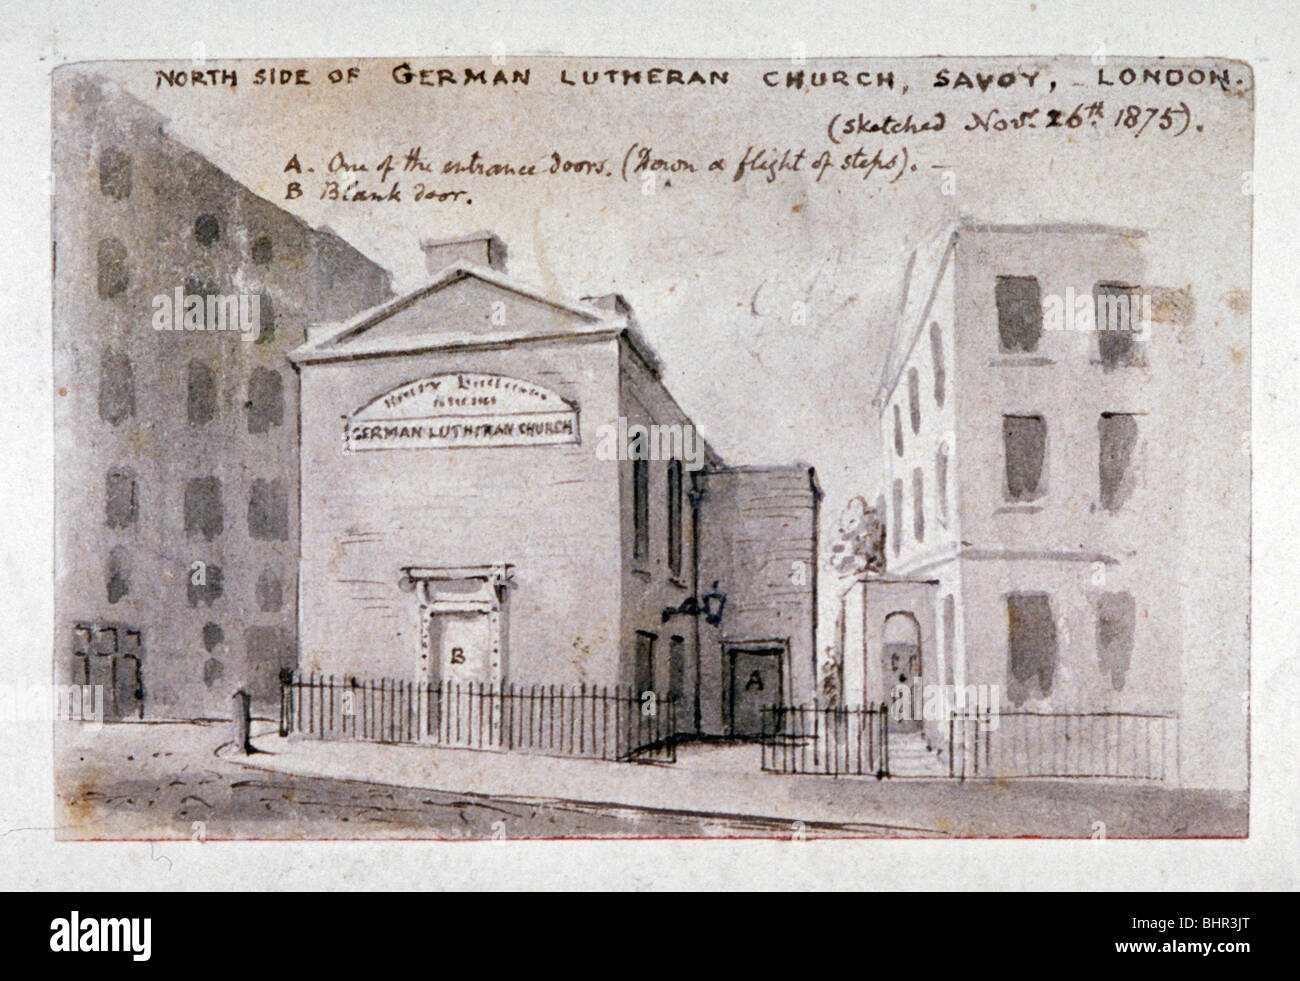 NORTH SIDE OF GERMAN LUTHERAN CHURCH, SAVOY, - LONDON.
(sketched Novr. 26th. 1875).
A. One of the entrance doors. (Down a flight of steps). -
B Blank door.
GERMAN LUTHERAN CHURCH
B
A
alamy
alamy
Image ID: BHR3JT
www.alamy.com